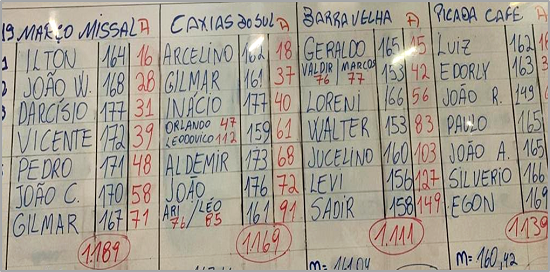 19 MARÇO MISSAL A CAXIAS DO SUL A BARRA VELHA A PICADA CAFÉ
ILTON 164 16 ARCELINO 162 18 GERALDO 165 15 LUIZ 162
JOÃO W. 168 28 GILMAR 161 37 VALDIR 76 / MARCOS 77 153 42 EDORLY 163
DARCÍSIO 177 31 INÁCIO 177 40 LORENI 166 56 JOÃO R. 149
VICENTE 172 39 ORLANDO 47 LEODOVICO 112 159 61 WALTER 153 83 PAULO 165
PEDRO 171 48 ALDEMIR 173 68 JUCELINO 160 103 JOÃO A. 165
JOÃO C. 170 58 JOÃO 176 72 LEVI 156 127 SILVERIO 166
GILMAR 167 71 ARI 76 / LÉO 85 161 91 SADIR 158 149 EGON 169
1.189 1.169 1.111 1.139
M= 160,42